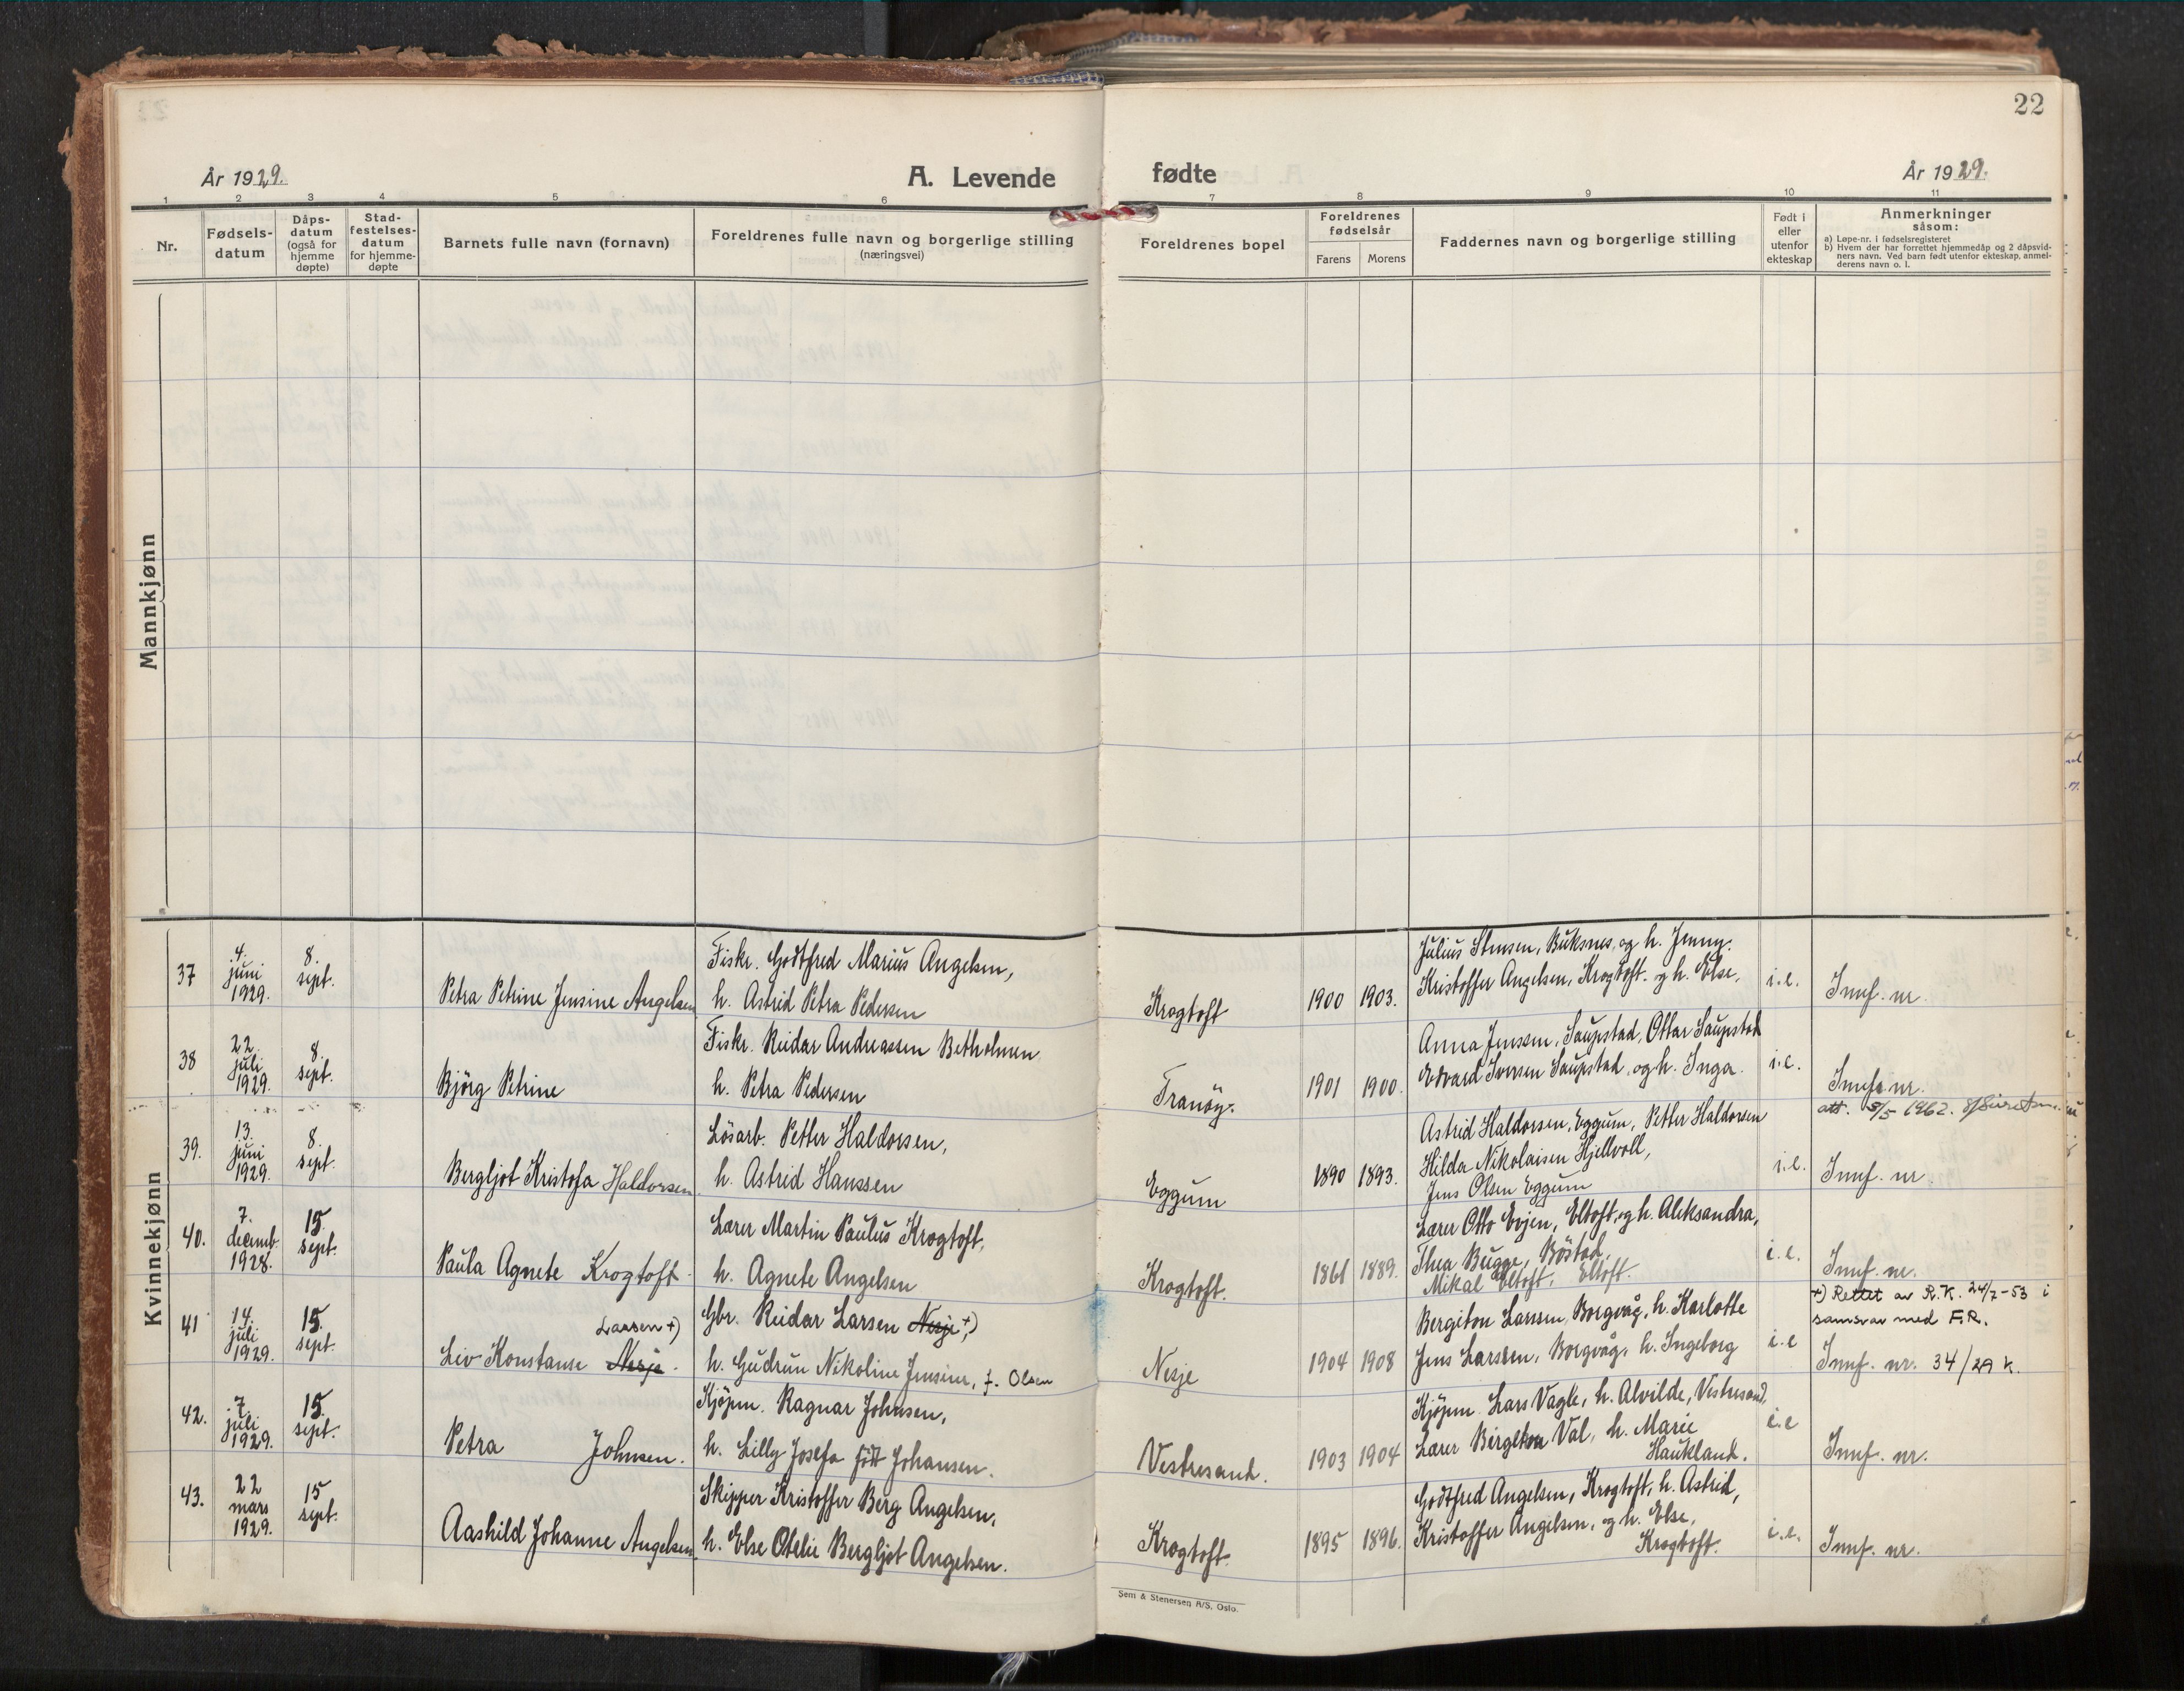 22
År 1929.
A. Levende
fødte
År 1929.
1 2 3 4 5 6 7 8 9 10 11
Nr.
Fødsels-
datum
Dåps-
datum
(også for
hjemme
døpte)
Stad-
festelses-
datum
for hjemme-
døpte
Barnets fulle navn (fornavn)
Foreldrenes fulle navn og borgerlige stilling
(næringsvei)
Foreldrenes bopel
Foreldrenes
fødselsår
Farens Morens
Faddernes navn og borgerlige stilling
Født i
eller
utenfor
ekteskap
Anmerkninger
såsom:
a) Løpe-nr. i fødselsregisteret
b) Hvem der har forrettet hjemmedåp og 2 dåpsvid-
ners navn. Ved barn født utenfor ekteskap, anmel-
derens navn o. l.
Mannkjønn
Kvinnekjønn
37
4.
juni
1929.
8.
sept.
Petra Petrine Jensine Angelsen
Fiskr. Godtfred Marius Angelsen,
h. Astrid Petra Pedersen
Krogtoft
1900 1903.
Julius Stensen, Buksnes, og h. Jenny.
Kristoffer Angelsen, Krogtoft. og h. Else.
i.e.
Innf. nr.
38
22.
juli
1929.
8.
sept.
Bjørg Petrine
Fiskr. Reidar Andreassen Betholmen
h. Petra Pedersen
Tranøy.
1901 1900.
Anna Jenssen, Saupstad, Ottar Saupstad
Edvard Iversen Saupstad, og h. Inga.
i.e.
Innf. nr.
att. 8/5 1962.
39.
13.
juni
1929.
8.
sept.
Bergljot Kristofa Haldorsen
Løsarb. Petter Haldorsen,
h. Astrid Hanssen
Eggum
1890 1893.
Astrid Haldorsen, Eggum, Petter Haldorsen
Hilda Nikolaisen Hjellvoll,
Jens Olsen Eggum
i.e.
Innf. nr.
40.
7.
decemb.
1928.
15.
sept.
Paula Agnete Krogtoft.
Lærer Martin Paulus Krogtoft,
h. Agnete Angelsen
Krogtoft.
1861 1889.
Lærer Otto Evjen, Eltoft, og h. Aleksandra,
Thea Bugge, Bøstad,
Mikal Eltoft, Eltoft.
i.e.
Innf. nr.
41
14.
juli
1929.
15.
sept.
Larsen +)
Liv Konstanse Nesje.
Gbr. Reidar Larsen Nesje +)
h. Gudrun Nikoline Jensine, f. Olsen
Nesje
1904 1908
Bergiton Larssen, Borgvåg, h. Karlotte
Jens Larssen, Borgvåg, h. Ingeborg
i.e
+) Rettet av R.K. 24/7-53 i
samsvar med F.R.
Innf. nr. 34/29 K.
42.
7.
juli
1929.
15.
sept.
Petra Johnsen.
Kjøpm. Ragnar Johnsen,
h. Lilly Josefa født Johansen.
Vestresand.
1903 1904
Kjøpm. Lars Vagle, h. Alvilde, Vestresand,
Lærer Birgiton Val, h. Marie
Haukland.
i.e
Innf. nr.
43.
22
mars
1929.
15
sept.
Aashild Johanne Angelsen
Skipper Kristoffer Berg Angelsen,
h. Else Otelie Bergljot Angelsen.
Krogtoft.
1895 1896.
Godtfred Angelsen, Krogtoft, h. Astrid,
Kristoffer Angelsen, og h. Else,
Krogtoft.
i.e.
Innf. nr.
Sem & Stenersen A/S. Oslo.